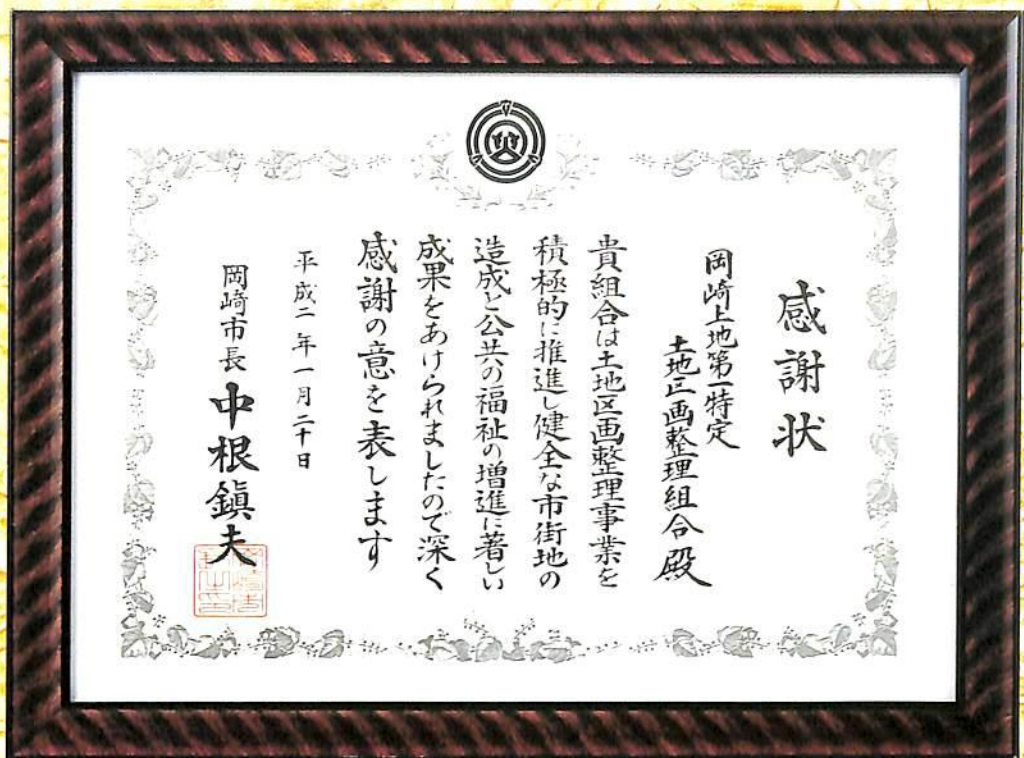 感謝状
岡崎上地第一特定
土地区画整理組合殿
貴組合は土地区画整理事業を
積極的に推進し健全な市街地の
造成と公共の福祉の増進に著しい
成果をあけられましたので深く
感謝の意を表します
平成二年一月二十日
岡崎市長 中根鎭夫